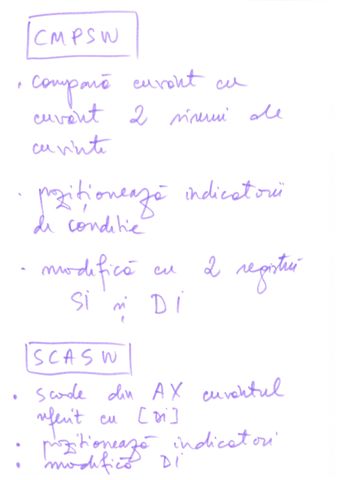 CMPSW
• compară cuvânt cu
cuvânt 2 șiruri de
cuvinte
• poziționează indicatorii
de condiție
• modifică cu 2 regiștrii
SI și DI
SCASW
• scade din AX cuvântul
referit cu [DI]
• poziționează indicatorii
• modifică DI